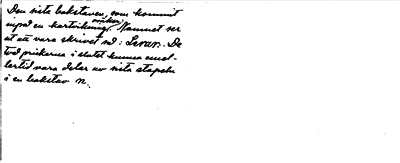 Den sista bokstaven, som kommit
med en kartritning, osäker. Namnet ser
ut att vara skrivet med: Levar. De
två prickarna i slutet kunna emel-
lertid vara delar av sista stapeln
i en bokstav n.